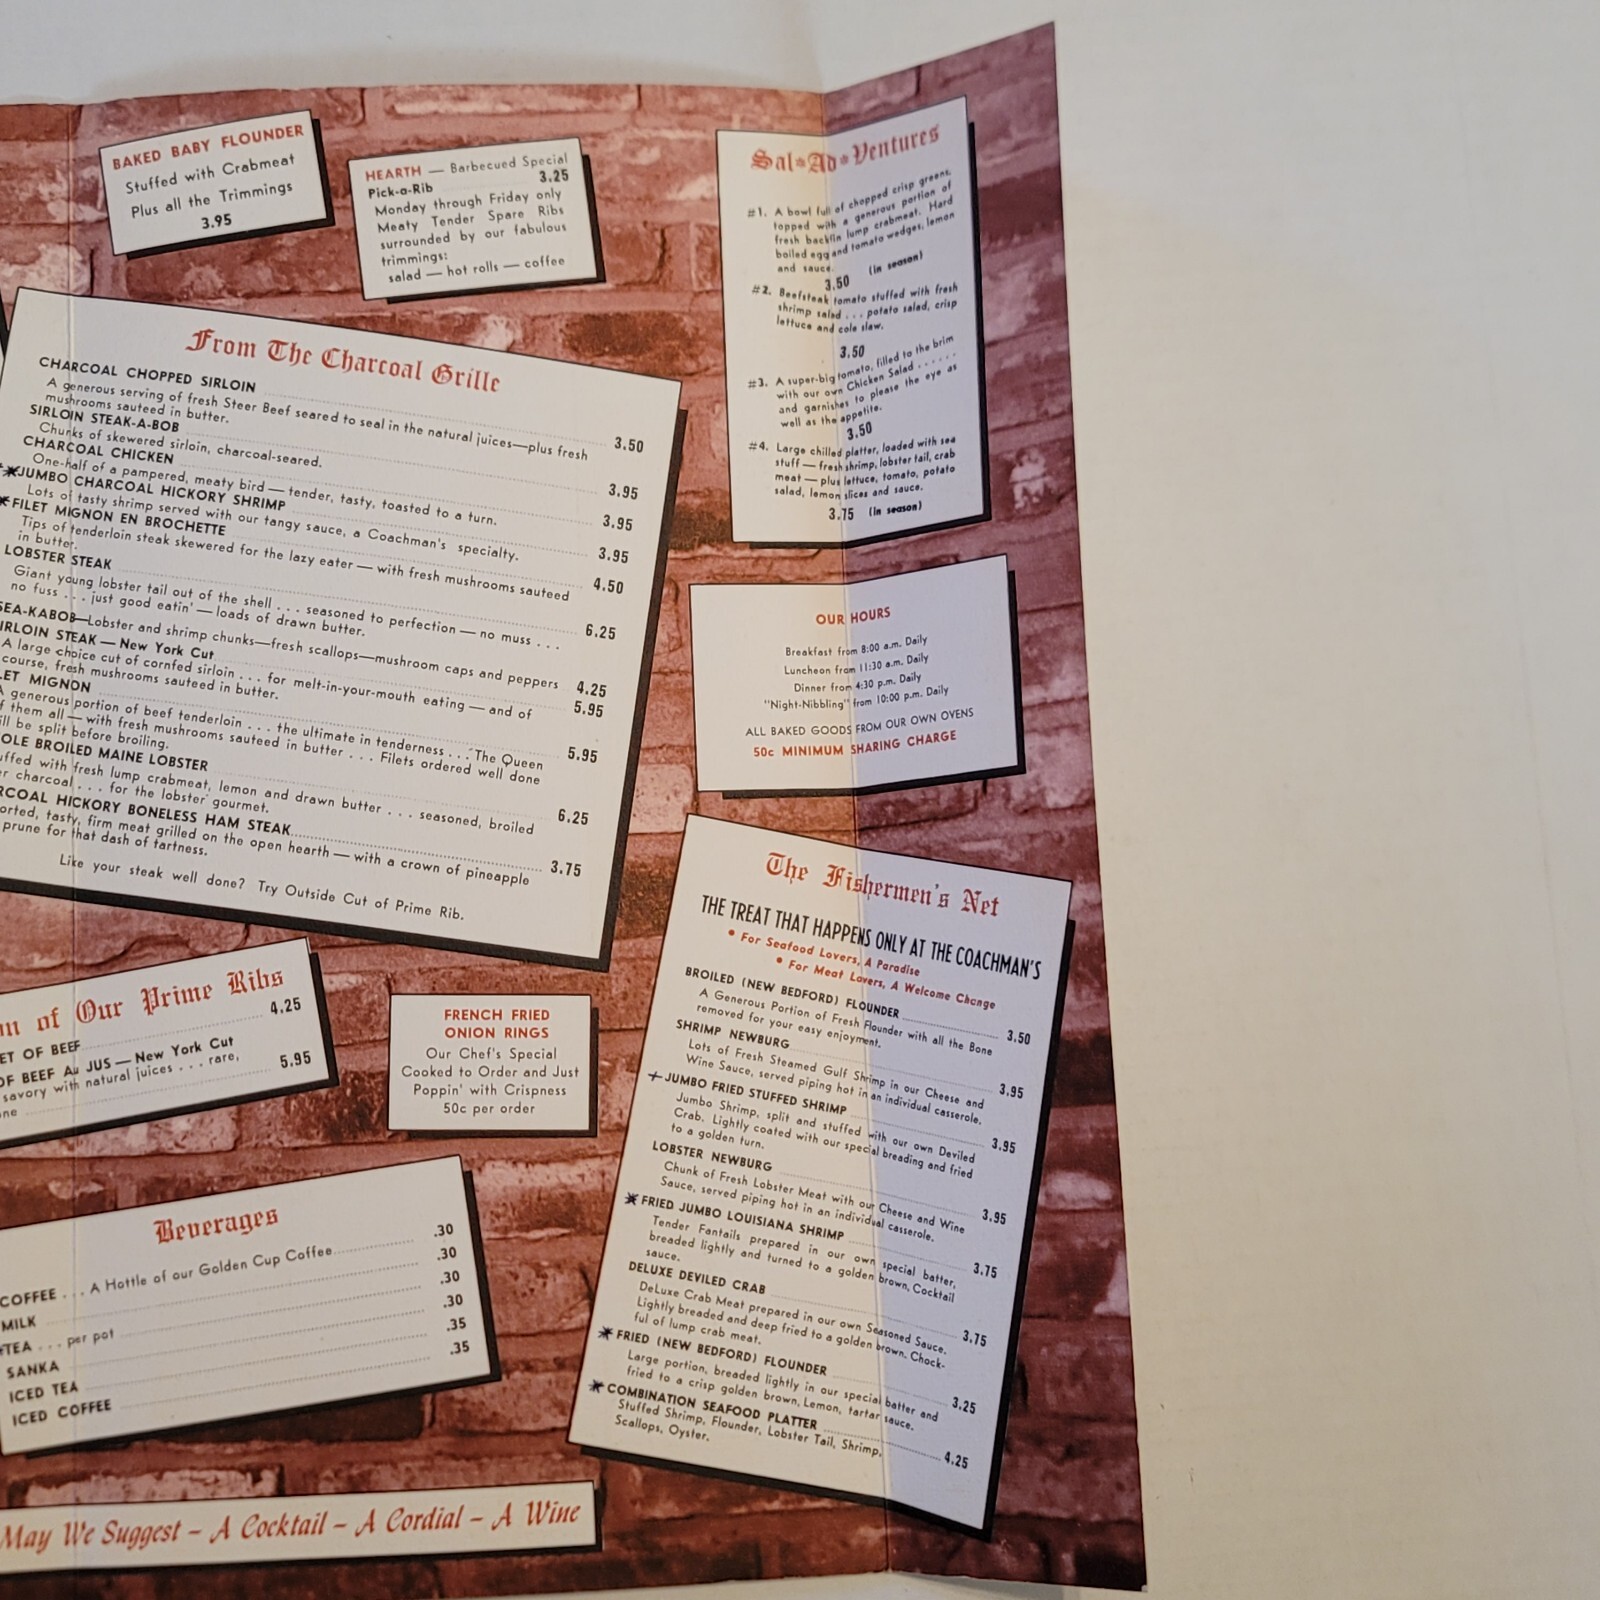 BAKED BABY FLOUNDER
Stuffed with Crabmeat
Plus all the Trimmings
3.95
HEARTH — Barbecued Special
Pick-a-Rib 3.25
Monday through Friday only
Meaty Tender Spare Ribs
surrounded by our fabulous
trimmings:
salad — hot rolls — coffee
From The Charcoal Grille
CHARCOAL CHOPPED SIRLOIN 3.50
A generous serving of fresh Steer Beef seared to seal in the natural juices—plus fresh
mushrooms sauteed in butter.
SIRLOIN STEAK-A-BOB 3.95
Chunks of skewered sirloin, charcoal-seared.
CHARCOAL CHICKEN 3.95
One-half of a pampered, meaty bird — tender, tasty, toasted to a turn.
JUMBO CHARCOAL HICKORY SHRIMP 3.95
Lots of tasty shrimp served with our tangy sauce, a Coachman's specialty.
FILET MIGNON EN BROCHETTE 4.50
Tips of tenderloin steak skewered for the lazy eater — with fresh mushrooms sauteed
in butter.
LOBSTER STEAK 6.25
Giant young lobster tail out of the shell . . . seasoned to perfection — no muss . . .
no fuss . . . just good eatin' — loads of drawn butter.
SEA-KABOB—Lobster and shrimp chunks—fresh scallops—mushroom caps and peppers 4.25
IRLOIN STEAK — New York Cut 5.95
A large choice cut of cornfed sirloin . . . for melt-in-your-mouth eating — and of
course, fresh mushrooms sauteed in butter.
LET MIGNON 5.95
A generous portion of beef tenderloin . . . the ultimate in tenderness . . . The Queen
f them all — with fresh mushrooms sauteed in butter . . . Filets ordered well done
ill be split before broiling.
OLE BROILED MAINE LOBSTER 6.25
uffed with fresh lump crabmeat, lemon and drawn butter . . . seasoned, broiled
er charcoal . . . for the lobster gourmet.
RCOAL HICKORY BONELESS HAM STEAK 3.75
orted, tasty, firm meat grilled on the open hearth — with a crown of pineapple
prune for that dash of tartness.
Like your steak well done? Try Outside Cut of Prime Rib.
on of Our Prime Ribs
ET OF BEEF 4.25
OF BEEF Au JUS — New York Cut 5.95
savory with natural juices . . . rare,
ne
FRENCH FRIED
ONION RINGS
Our Chef's Special
Cooked to Order and Just
Poppin' with Crispness
50c per order
Beverages
COFFEE . . . A Hottle of our Golden Cup Coffee .30
MILK .30
TEA . . . per pot .30
SANKA .30
ICED TEA .35
ICED COFFEE .35
May We Suggest – A Cocktail – A Cordial – A Wine
Sal•Ad•Ventures
#1. A bowl full of chopped crisp greens,
topped with a generous portion of
fresh backfin lump crabmeat. Hard
boiled egg and tomato wedges, lemon
and sauce.
3.50 (In season)
#2. Beefsteak tomato stuffed with fresh
shrimp salad . . . potato salad, crisp
lettuce and cole slaw.
3.50
#3. A super-big tomato, filled to the brim
with our own Chicken Salad . . . . . .
and garnishes to please the eye as
well as the appetite.
3.50
#4. Large chilled platter, loaded with sea
stuff — fresh shrimp, lobster tail, crab
meat — plus lettuce, tomato, potato
salad, lemon slices and sauce.
3.75 (In season)
OUR HOURS
Breakfast from 8:00 a.m. Daily
Luncheon from 11:30 a.m. Daily
Dinner from 4:30 p.m. Daily
"Night-Nibbling" from 10:00 p.m. Daily
ALL BAKED GOODS FROM OUR OWN OVENS
50c MINIMUM SHARING CHARGE
The Fishermen's Net
THE TREAT THAT HAPPENS ONLY AT THE COACHMAN'S
• For Seafood Lovers, A Paradise
• For Meat Lovers, A Welcome Change
BROILED (NEW BEDFORD) FLOUNDER 3.50
A Generous Portion of Fresh Flounder with all the Bone
removed for your easy enjoyment.
SHRIMP NEWBURG 3.95
Lots of Fresh Steamed Gulf Shrimp in our Cheese and
Wine Sauce, served piping hot in an individual casserole.
JUMBO FRIED STUFFED SHRIMP 3.95
Jumbo Shrimp, split and stuffed with our own Deviled
Crab. Lightly coated with our special breading and fried
to a golden turn.
LOBSTER NEWBURG 3.95
Chunk of Fresh Lobster Meat with our Cheese and Wine
Sauce, served piping hot in an individual casserole.
FRIED JUMBO LOUISIANA SHRIMP 3.75
Tender Fantails prepared in our own special batter,
breaded lightly and turned to a golden brown. Cocktail
sauce.
DELUXE DEVILED CRAB 3.75
DeLuxe Crab Meat prepared in our own Seasoned Sauce.
Lightly breaded and deep fried to a golden brown. Chock-
ful of lump crab meat.
FRIED (NEW BEDFORD) FLOUNDER 3.25
Large portion, breaded lightly in our special batter and
fried to a crisp golden brown, Lemon, tartar sauce.
COMBINATION SEAFOOD PLATTER 4.25
Stuffed Shrimp, Flounder, Lobster Tail, Shrimp,
Scallops, Oyster.